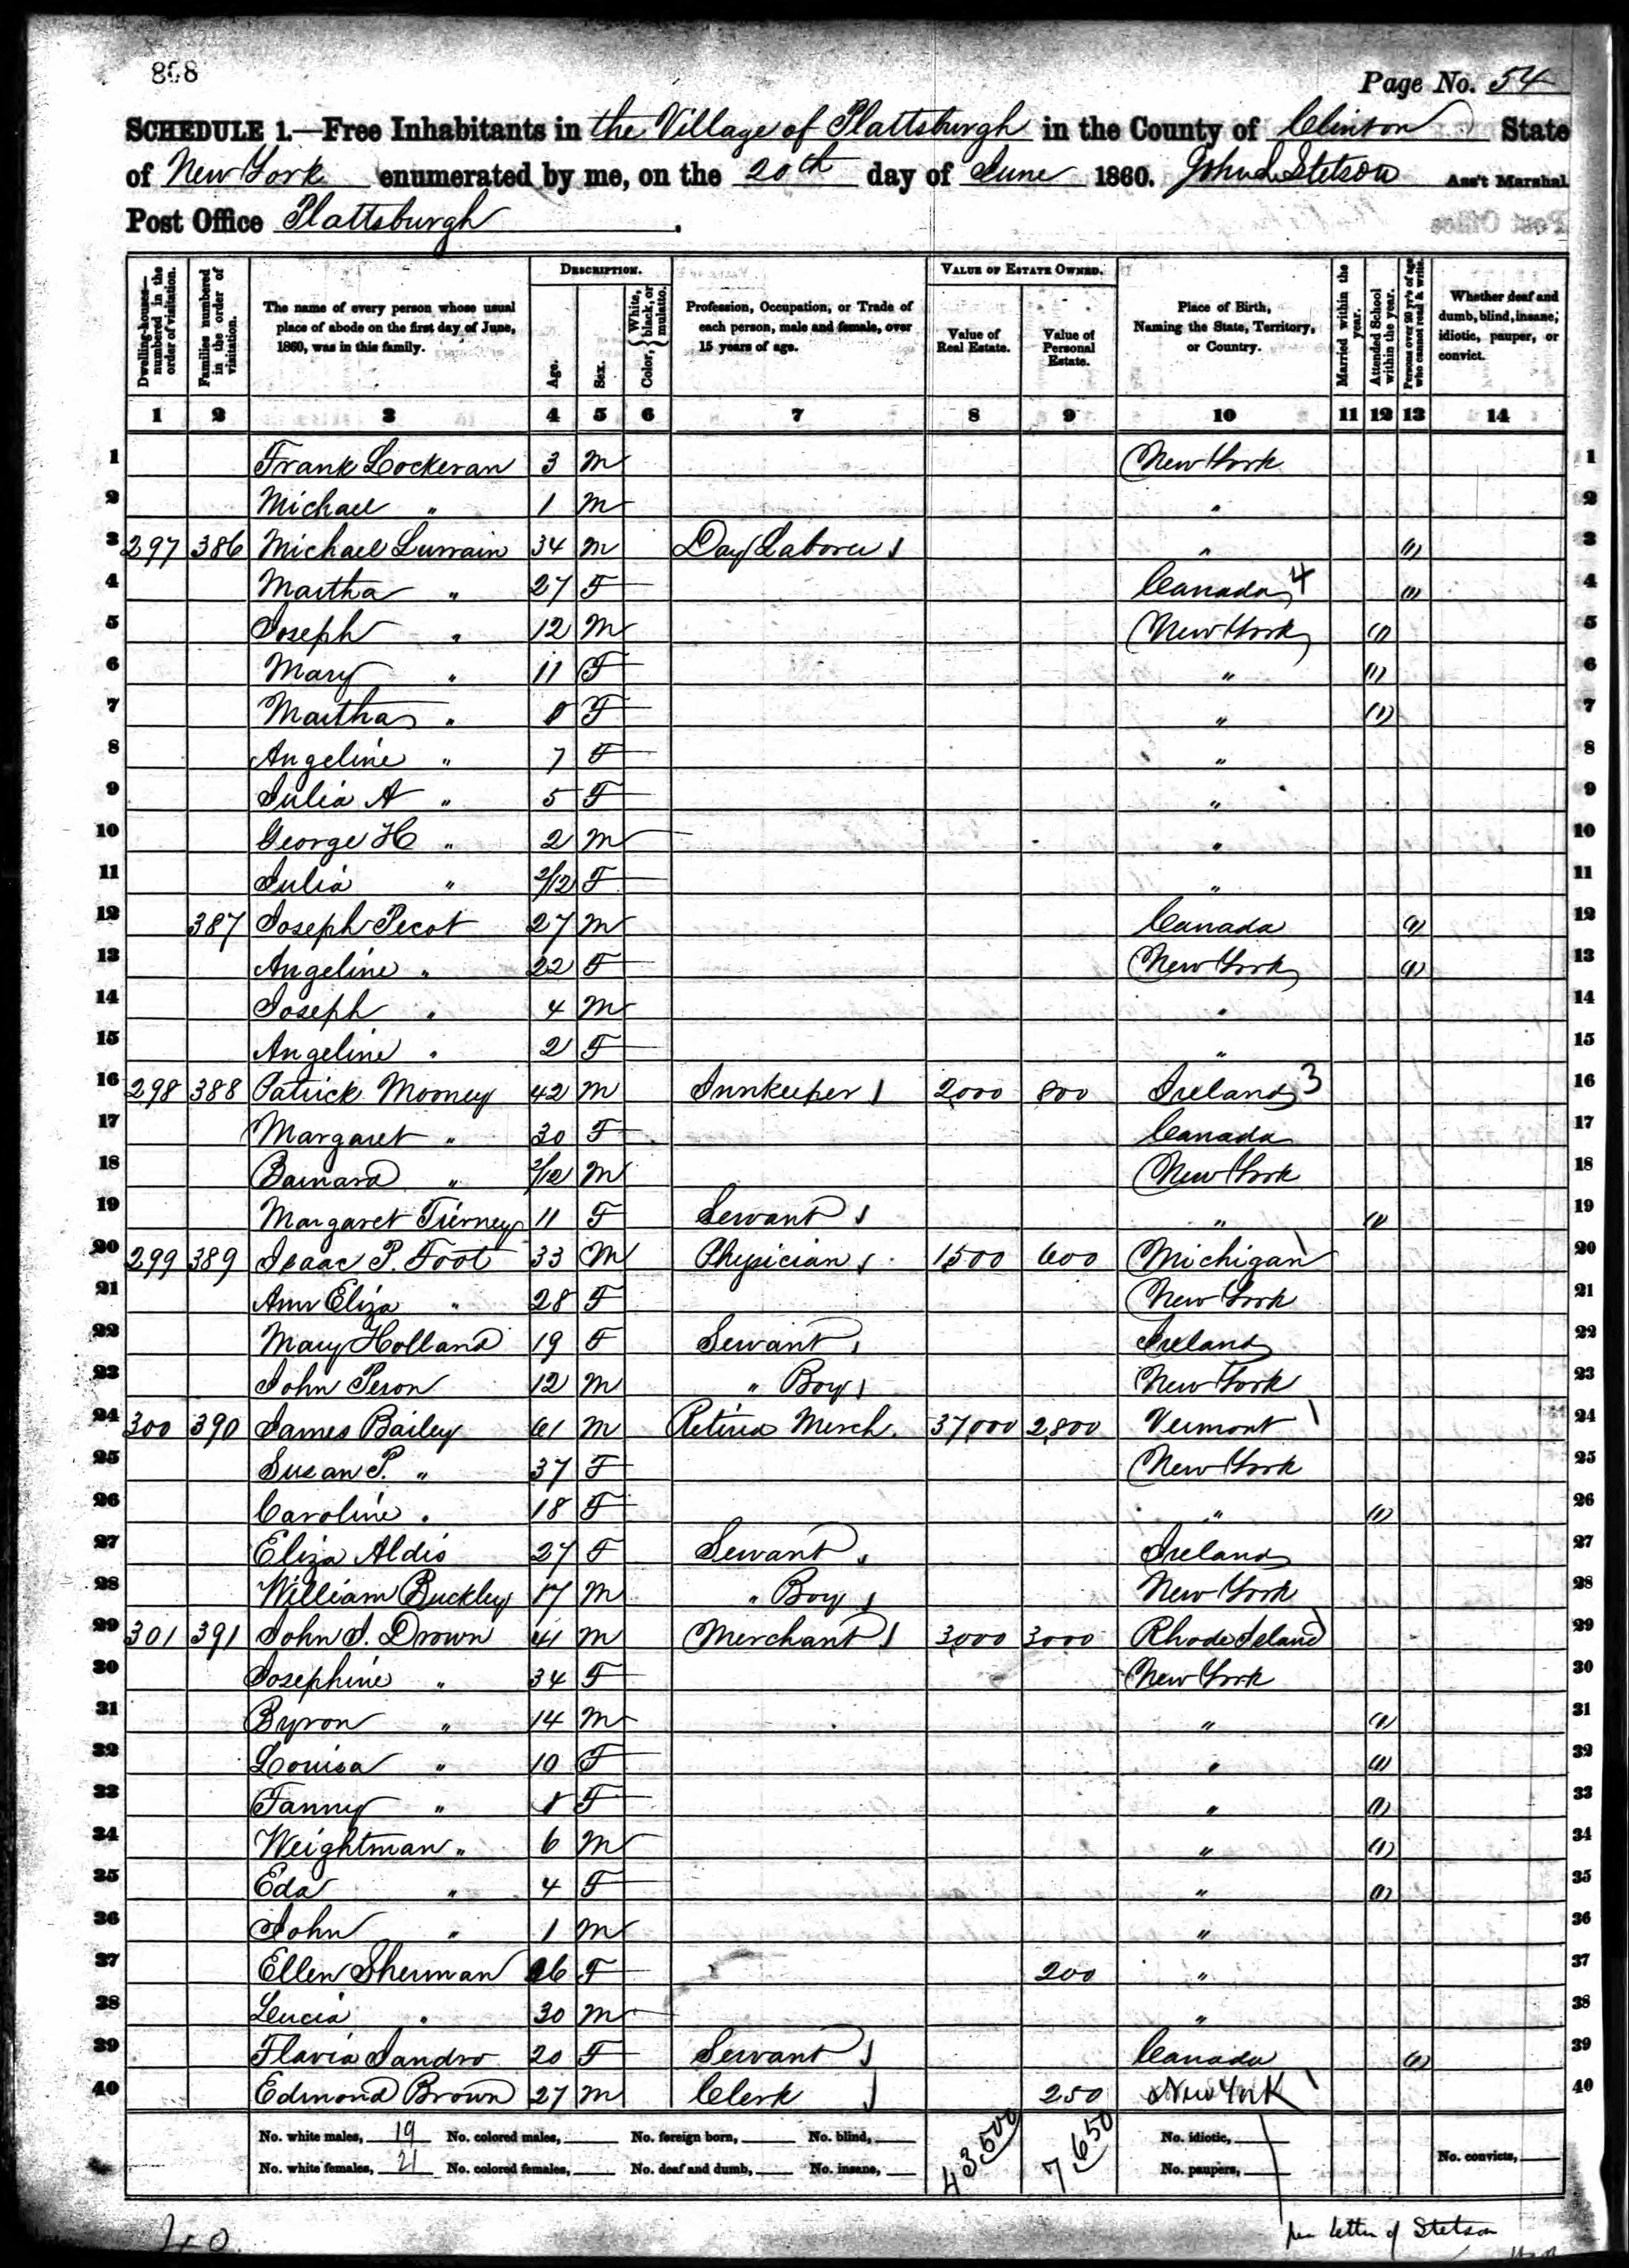 808
Page No. 54
SCHEDULE 1.—Free Inhabitants in the Village of Plattsburgh in the County of Clinton State
of New York enumerated by me, on the 20th day of June 1860. John L Stetson Ass't Marshal.
Post Office Plattsburgh.
Dwelling-houses—numbered in the order of visitation.
Families numbered in the order of visitation.
The name of every person whose usual place of abode on the first day of June, 1860, was in this family.
DESCRIPTION.
Age.
Sex.
Color, { White, black, or mulatto.
Profession, Occupation, or Trade of each person, male and female, over 15 years of age.
VALUE OF ESTATE OWNED.
Value of Real Estate.
Value of Personal Estate.
Place of Birth, Naming the State, Territory, or Country.
Married within the year.
Attended School within the year.
Persons over 20 yr's of age who cannot read & write.
Whether deaf and dumb, blind, insane, idiotic, pauper, or convict.
1 2 3 4 5 6 7 8 9 10 11 12 13 14
1 Frank Lockeran 3 m New York 1
2 Michael " 1 m " 2
3 297 386 Michael Lurrain 34 m Day Laborer 1 " (1) 3
4 Martha " 27 F Canada 4 (1) 4
5 Joseph " 12 m New York (1) 5
6 Mary " 11 F " (1) 6
7 Martha " 8 F " (1) 7
8 Angeline " 7 F " 8
9 Julia A " 5 F " 9
10 George H " 2 m " 10
11 Julia " 2/12 F " 11
12 387 Joseph Pecot 27 m Canada (1) 12
13 Angeline " 22 F New York (1) 13
14 Joseph " 4 m " 14
15 Angeline " 2 F " 15
16 298 388 Patrick Mooney 42 m Innkeeper 1 2,000 800 Ireland 3 16
17 Margaret " 30 F Canada 17
18 Barnard " 2/12 m New York 18
19 Margaret Tierney 11 F Servant 1 " (1) 19
20 299 389 Isaac P. Foot 33 m Physician 1 1,500 600 Michigan 1 20
21 Ann Eliza " 28 F New York 21
22 Mary Holland 19 F Servant 1 Ireland 22
23 John Peron 12 m " Boy 1 New York 23
24 300 390 James Bailey 61 m Retired Merch. 37,000 2,800 Vermont 1 24
25 Susan P. " 37 F New York 25
26 Caroline " 18 F " (1) 26
27 Eliza Aldis 27 F Servant 1 Ireland 27
28 William Buckley 17 m " Boy 1 New York 28
29 301 391 John J. Drown 41 m Merchant 1 3,000 3,000 Rhode Island 1 29
30 Josephine " 34 F New York 30
31 Byron " 14 m " (1) 31
32 Louisa " 10 F " (1) 32
33 Fanny " 8 F " (1) 33
34 Weightman " 6 m " (1) 34
35 Eda " 4 F " (1) 35
36 John " 1 m " 36
37 Ellen Sherman F 200 " 37
38 Lucia " 30 m " 38
39 Flavia Jandro 20 F Servant 1 Canada (1) 39
40 Edmond Brown 27 m Clerk 1 250 New York 1 40
No. white males, 19 No. colored males, No. foreign born, No. blind, 43,500 7,650 No. idiotic,
No. white females, 21 No. colored females, No. deaf and dumb, No. insane, No. paupers, No. convicts,
per letter of Stetson
40